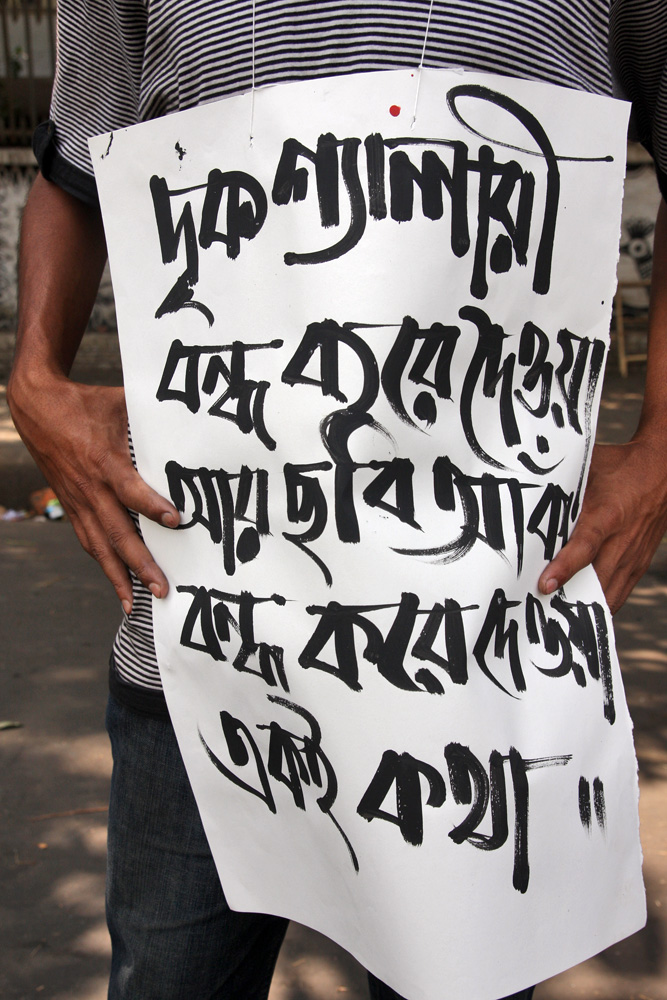 দৃক গ্যালারী
বন্ধ করে দেওয়া
আর ছবি আঁকা
বন্ধ করে দেওয়া
একই কথা "